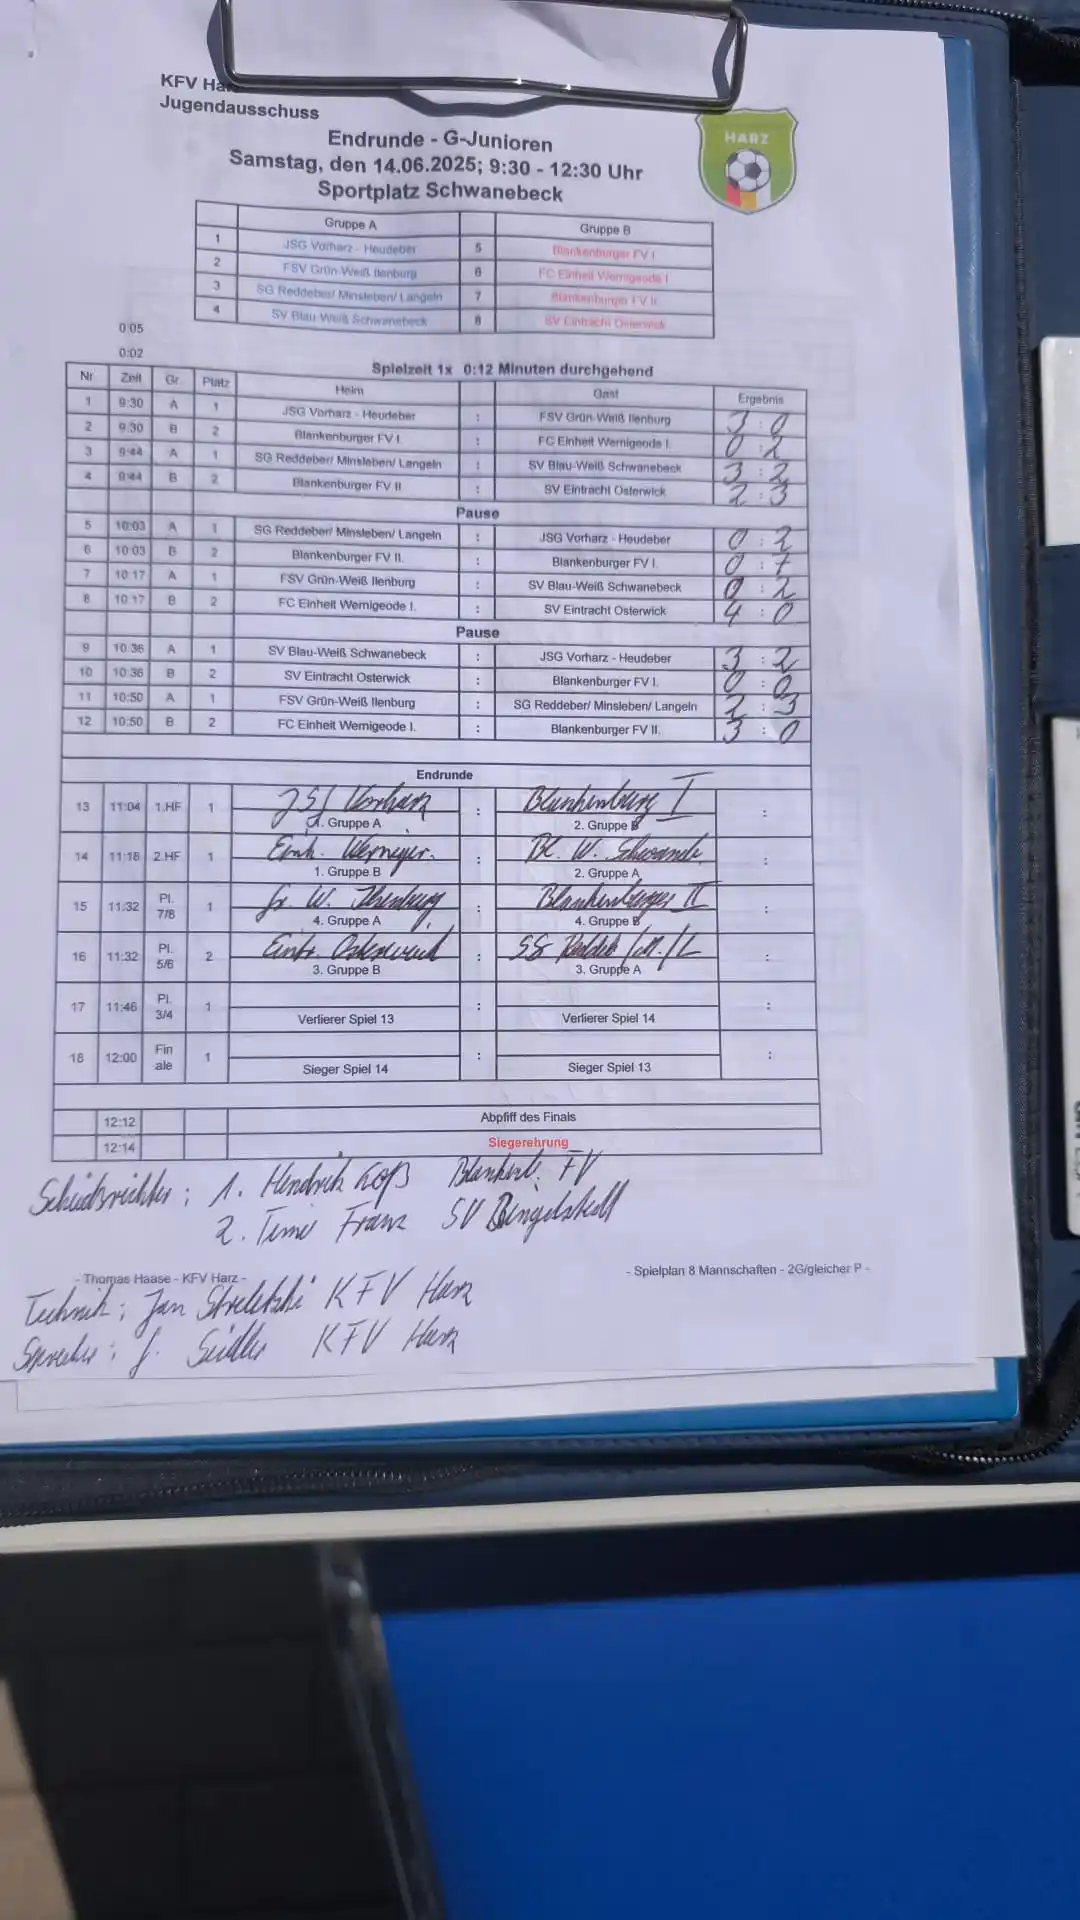 KFV Ha
Jugendausschuss
HARZ
Endrunde - G-Junioren
Samstag, den 14.06.2025; 9:30 - 12:30 Uhr
Sportplatz Schwanebeck
Gruppe A Gruppe B
1 JSG Vorharz - Heudeber 5 Blankenburger FV I
2 FSV Grün-Weiß Ilenburg 6 FC Einheit Wernigeode I
3 SG Reddeber/ Minsleben/ Langeln 7 Blankenburger FV II
4 SV Blau-Weiß Schwanebeck 8 SV Eintracht Osterwick
0:05
0:02
Spielzeit 1x 0:12 Minuten durchgehend
Nr Zeit Gr. Platz Heim Gast Ergebnis
1 9:30 A 1 JSG Vorharz - Heudeber : FSV Grün-Weiß Ilenburg 3 : 0
2 9:30 B 2 Blankenburger FV I. : FC Einheit Wernigeode I. 0 : 2
3 9:44 A 1 SG Reddeber/ Minsleben/ Langeln : SV Blau-Weiß Schwanebeck 3 : 2
4 9:44 B 2 Blankenburger FV II : SV Eintracht Osterwick 2 : 3
Pause
5 10:03 A 1 SG Reddeber/ Minsleben/ Langeln : JSG Vorharz - Heudeber 0 : 2
6 10:03 B 2 Blankenburger FV II. : Blankenburger FV I. 0 : 7
7 10:17 A 1 FSV Grün-Weiß Ilenburg : SV Blau-Weiß Schwanebeck 0 : 2
8 10:17 B 2 FC Einheit Wernigeode I. : SV Eintracht Osterwick 4 : 0
Pause
9 10:36 A 1 SV Blau-Weiß Schwanebeck : JSG Vorharz - Heudeber 3 : 2
10 10:36 B 2 SV Eintracht Osterwick : Blankenburger FV I. 0 : 0
11 10:50 A 1 FSV Grün-Weiß Ilenburg : SG Reddeber/ Minsleben/ Langeln 2 : 3
12 10:50 B 2 FC Einheit Wernigeode I. : Blankenburger FV II. 3 : 0
Endrunde
JSG Vorharz Blankenburg I
13 11:04 1.HF 1 : :
1. Gruppe A 2. Gruppe B
Einh. Werniger. Bl. W. Schwaneb.
14 11:18 2.HF 1 : :
1. Gruppe B 2. Gruppe A
Gr. W. Ilsenburg Blankenburger II
15 11:32 Pl. 7/8 1 : :
4. Gruppe A 4. Gruppe B
Eintr. Osterwieck SG Reddeb/M./L
16 11:32 Pl. 5/6 2 : :
3. Gruppe B 3. Gruppe A
17 11:46 Pl. 3/4 1 : :
Verlierer Spiel 13 Verlierer Spiel 14
18 12:00 Fin ale 1 : :
Sieger Spiel 14 Sieger Spiel 13
12:12 Abpfiff des Finals
12:14 Siegerehrung
Schiedsrichter: 1. Hendrik Blankenb. FV
2. Timo Franz SV Dingelstedt
- Thomas Haase - KFV Harz - - Spielplan 8 Mannschaften - 2G/gleicher P -
Technik: Jan Streletzki KFV Harz
Sprecher: J. Seidler KFV Harz